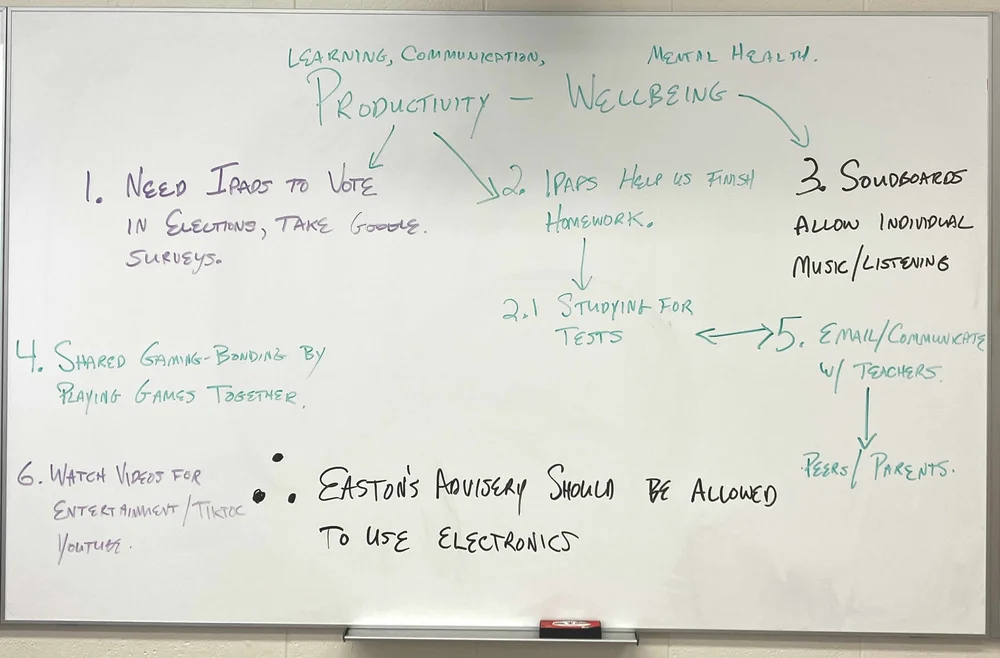 LEARNING, COMMUNICATION,
MENTAL HEALTH.
PRODUCTIVITY — WELLBEING
1. NEED IPADS TO VOTE
IN ELECTIONS, TAKE GOOGLE.
SURVEYS.
2. IPAPS HELP US FINISH
HOMEWORK.
3. SOUDBOARDS
ALLOW INDIVIDUAL
MUSIC/LISTENING
2.1 STUDYING FOR
TESTS
5. EMAIL/COMMUNICATE
W/ TEACHERS.
4. SHARED GAMING-BONDING BY
PLAYING GAMES TOGETHER.
PEERS/PARENTS.
6. WATCH VIDEOS FOR
ENTERTAINMENT/TIKTOC
YOUTUBE.
∴ EASTON'S ADVISERY SHOULD BE ALLOWED
TO USE ELECTRONICS